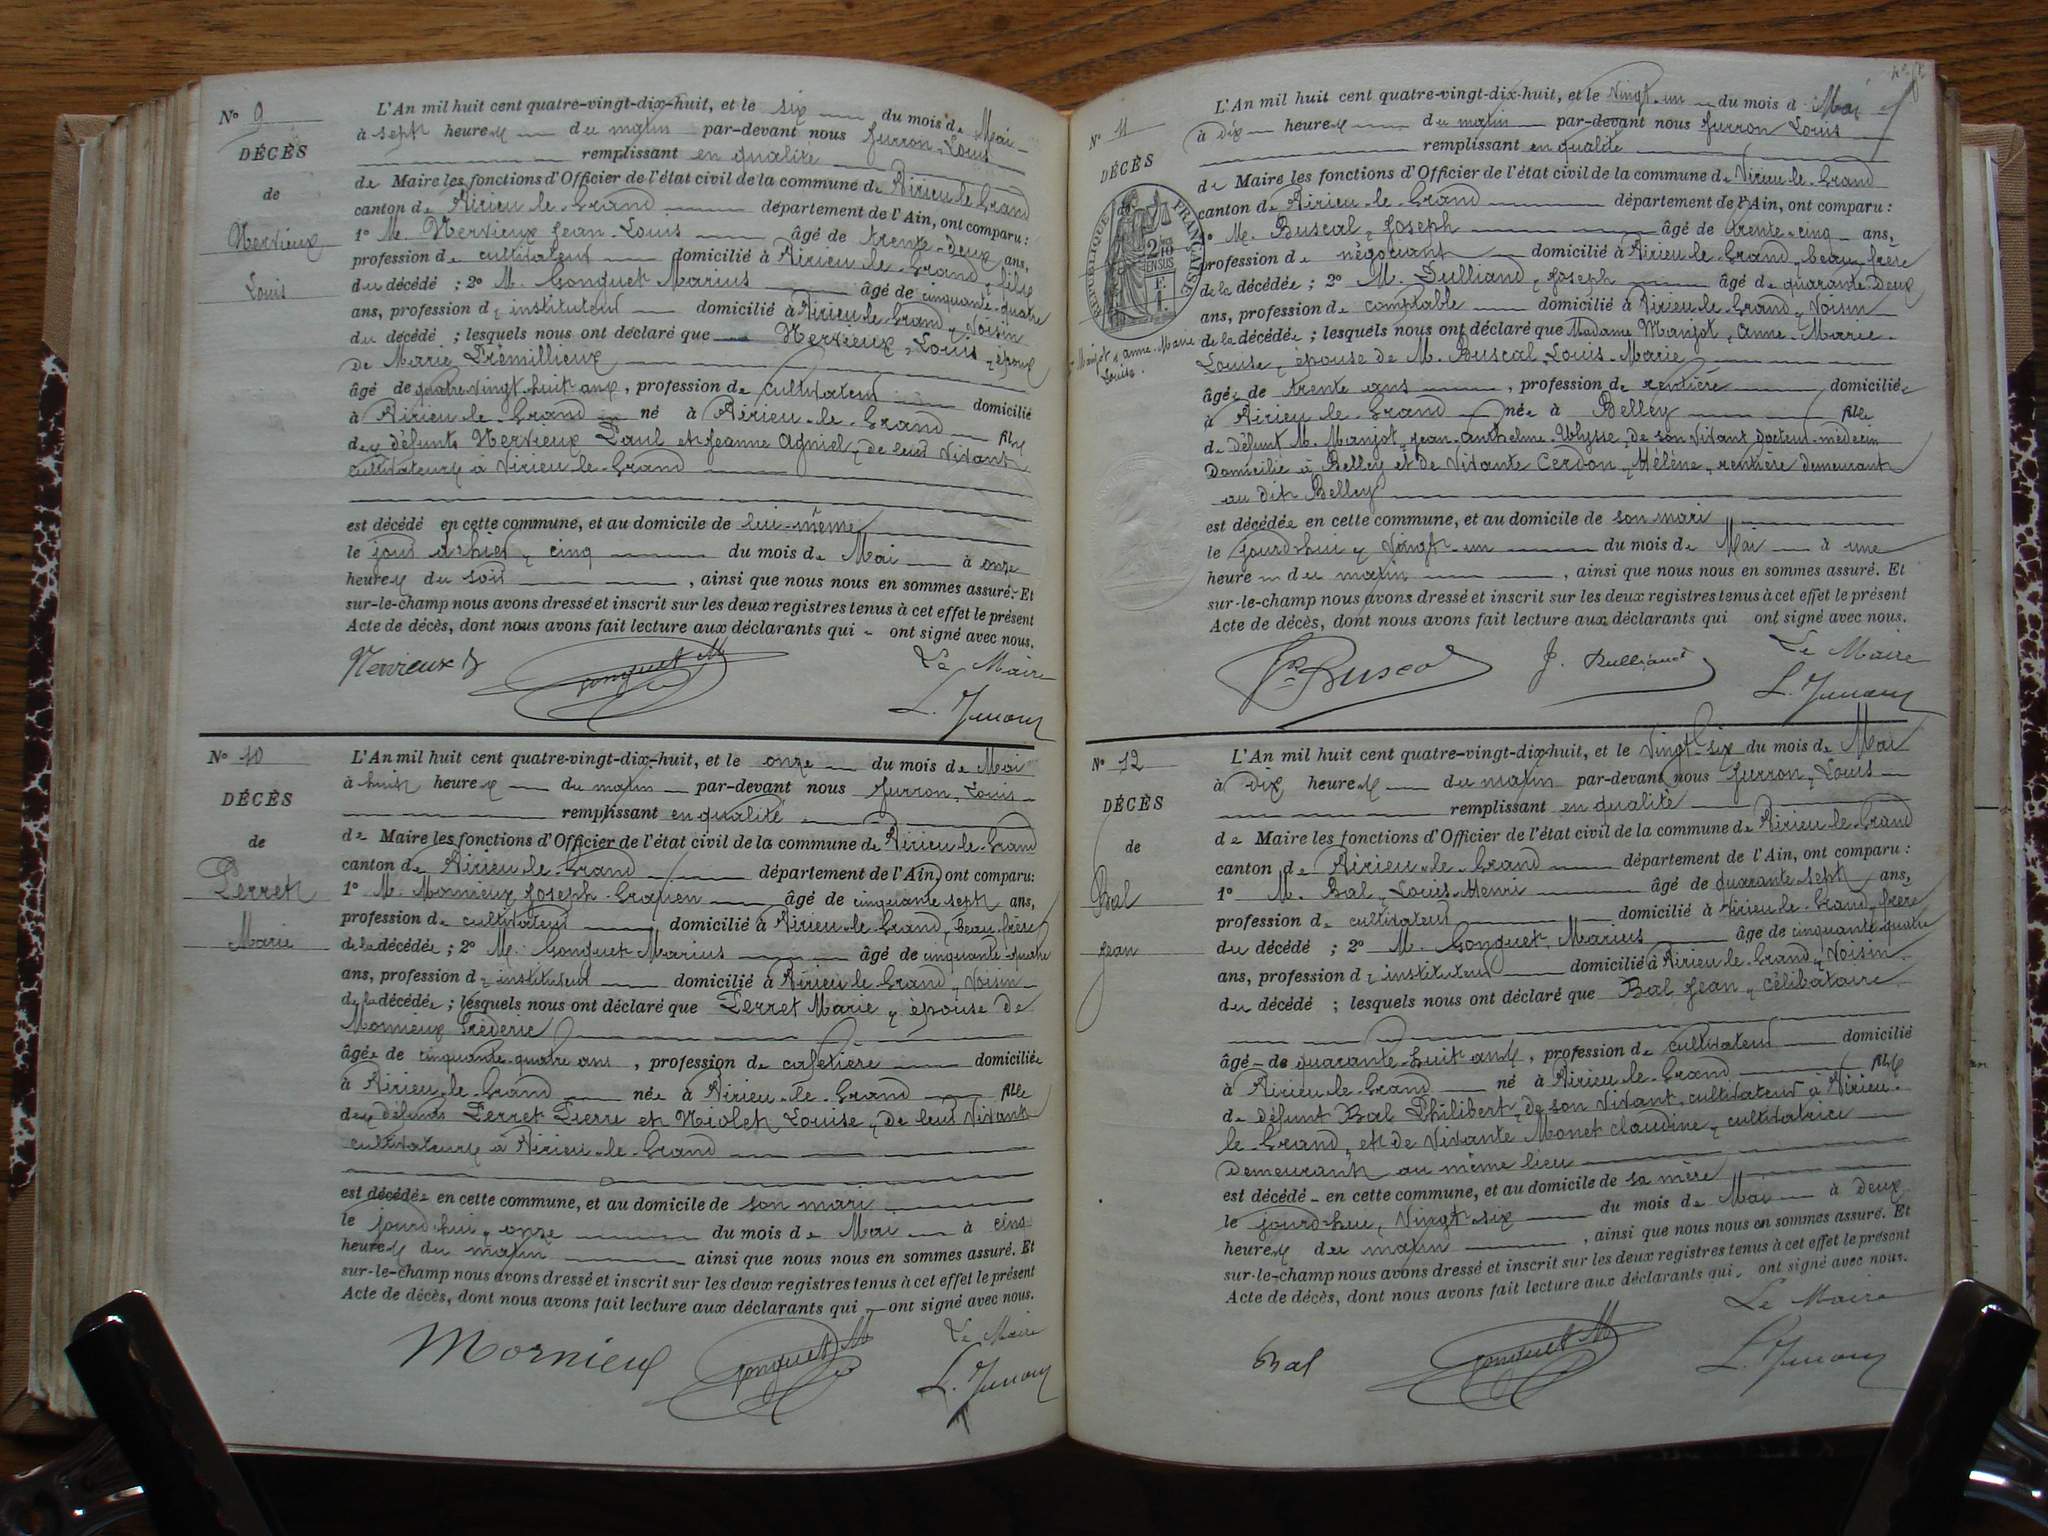 N° 9
DÉCÈS
de
Nervieux
Louis
L'An mil huit cent quatre-vingt-dix-huit, et le six du mois de Mai
à sept heures du matin par-devant nous Juron, Louis
remplissant en qualité
de Maire les fonctions d'Officier de l'état civil de la commune de Virieu-le-Grand
canton de Virieu-le-Grand département de l'Ain, ont comparu :
1° M. Nervieux Jean-Louis âgé de trente-deux ans,
profession de cultivateur domicilié à Virieu-le-Grand, fils
du décédé ; 2° M. Gonguet Marius âgé de cinquante-quatre
ans, profession d'instituteur domicilié à Virieu-le-Grand, Voisin
du décédé ; lesquels nous ont déclaré que Nervieux, Louis, époux
de Marie Drémillieux
âgé de quatre vingt-huit ans, profession de cultivateur domicilié
à Virieu-le-Grand né à Virieu-le-Grand fils
des défunts Nervieux Paul et Jeanne Agniel, de leur vivant
cultivateurs à Virieu-le-Grand
est décédé en cette commune, et au domicile de lui-même
le jour d'hier, cinq du mois de Mai à onze
heures du soir, ainsi que nous nous en sommes assuré. Et
sur-le-champ nous avons dressé et inscrit sur les deux registres tenus à cet effet le présent
Acte de décès, dont nous avons fait lecture aux déclarants qui ont signé avec nous.
Nervieux Gonguet M Le Maire
L. Juron
N° 10
DÉCÈS
de
Perret
Marie
L'An mil huit cent quatre-vingt-dix-huit, et le onze du mois de Mai
à huit heures du matin par-devant nous Juron, Louis
remplissant en qualité
de Maire les fonctions d'Officier de l'état civil de la commune de Virieu-le-Grand
canton de Virieu-le-Grand département de l'Ain, ont comparu :
1° M. Mornieux Joseph âgé de cinquante sept ans,
profession de cultivateur domicilié à Virieu-le-Grand, Beau-frère
de la décédée ; 2° M. Gonguet Marius âgé de cinquante-quatre
ans, profession d'instituteur domicilié à Virieu-le-Grand, Voisin
de la décédée ; lesquels nous ont déclaré que Perret Marie, épouse de
Mornieux Fréderic
âgée de cinquante-quatre ans, profession de cafetière domiciliée
à Virieu-le-Grand née à Virieu-le-Grand fille
des défunts Perret Pierre et Violet Louise, de leur vivant
cultivateurs à Virieu-le-Grand
est décédée en cette commune, et au domicile de son mari
le jourd'hui, onze du mois de Mai à cinq
heures du matin ainsi que nous nous en sommes assuré. Et
sur-le-champ nous avons dressé et inscrit sur les deux registres tenus à cet effet le présent
Acte de décès, dont nous avons fait lecture aux déclarants qui ont signé avec nous.
Mornieux Gonguet M Le Maire
L. Juron
N° 11
DÉCÈS
de
RÉPUBLIQUE FRANÇAISE
Manjot, anne-Marie
Louise.
L'An mil huit cent quatre-vingt-dix-huit, et le Vingt-un du mois d Mai
à dix heures du matin par-devant nous Juron Louis
remplissant en qualité
de Maire les fonctions d'Officier de l'état civil de la commune de Virieu-le-Grand
canton de Virieu-le-Grand département de l'Ain, ont comparu :
1° M. Buscal, Joseph âgé de trente-cinq ans,
profession de négociant domicilié à Virieu-le-Grand, beau-frère
de la décédée ; 2° M. Dulliand, Joseph âgé de quarante-Deux
ans, profession de comptable domicilié à Virieu-le-Grand, Voisin
de la décédée ; lesquels nous ont déclaré que Madame Manjot, Anne-Marie-
Louise, épouse de M. Buscal Louis-Marie
âgée de trente ans, profession de rentière domiciliée
à Virieu-le-Grand née à Belley fille
de défunt M. Manjot, Jean-Anthelme-Ulysse, de son vivant Docteur-médecin
Domicilié à Belley et de vivante Cerdon, Hélène, rentière demeurant
au dit Belley
est décédée en cette commune, et au domicile de son mari
le jourd'hui, Vingt-un du mois de Mai à une
heure du matin, ainsi que nous nous en sommes assuré. Et
sur-le-champ nous avons dressé et inscrit sur les deux registres tenus à cet effet le présent
Acte de décès, dont nous avons fait lecture aux déclarants qui ont signé avec nous.
Buscal J. Dulliand Le Maire
L. Juron
N° 12
DÉCÈS
de
Bal
Jean
L'An mil huit cent quatre-vingt-dix-huit, et le Vingt-six du mois de Mai
à Dix heures du matin par-devant nous Juron, Louis
remplissant en qualité
de Maire les fonctions d'Officier de l'état civil de la commune de Virieu-le-Grand
canton de Virieu-le-Grand département de l'Ain, ont comparu :
1° M. Bal, Louis-Henri âgé de quarante sept ans,
profession de cultivateur domicilié à Virieu-le-Grand, frère
du décédé ; 2° M. Gonguet, Marius âgé de cinquante-quatre
ans, profession d'instituteur domicilié à Virieu-le-Grand, Voisin
du décédé ; lesquels nous ont déclaré que Bal Jean, célibataire
âgé de quarante-huit ans, profession de cultivateur domicilié
à Virieu-le-Grand né à Virieu-le-Grand fils
de défunt Bal Philibert, de son vivant, cultivateur à Virieu-
le-Grand, et de vivante Monet Claudine, cultivatrice
Demeurant au même lieu
est décédé en cette commune, et au domicile de sa mère
le jourd'hui, Vingt-six du mois de Mai à Deux
heures du matin, ainsi que nous nous en sommes assuré. Et
sur-le-champ nous avons dressé et inscrit sur les deux registres tenus à cet effet le présent
Acte de décès, dont nous avons fait lecture aux déclarants qui ont signé avec nous.
Bal Gonguet M Le Maire
L. Juron